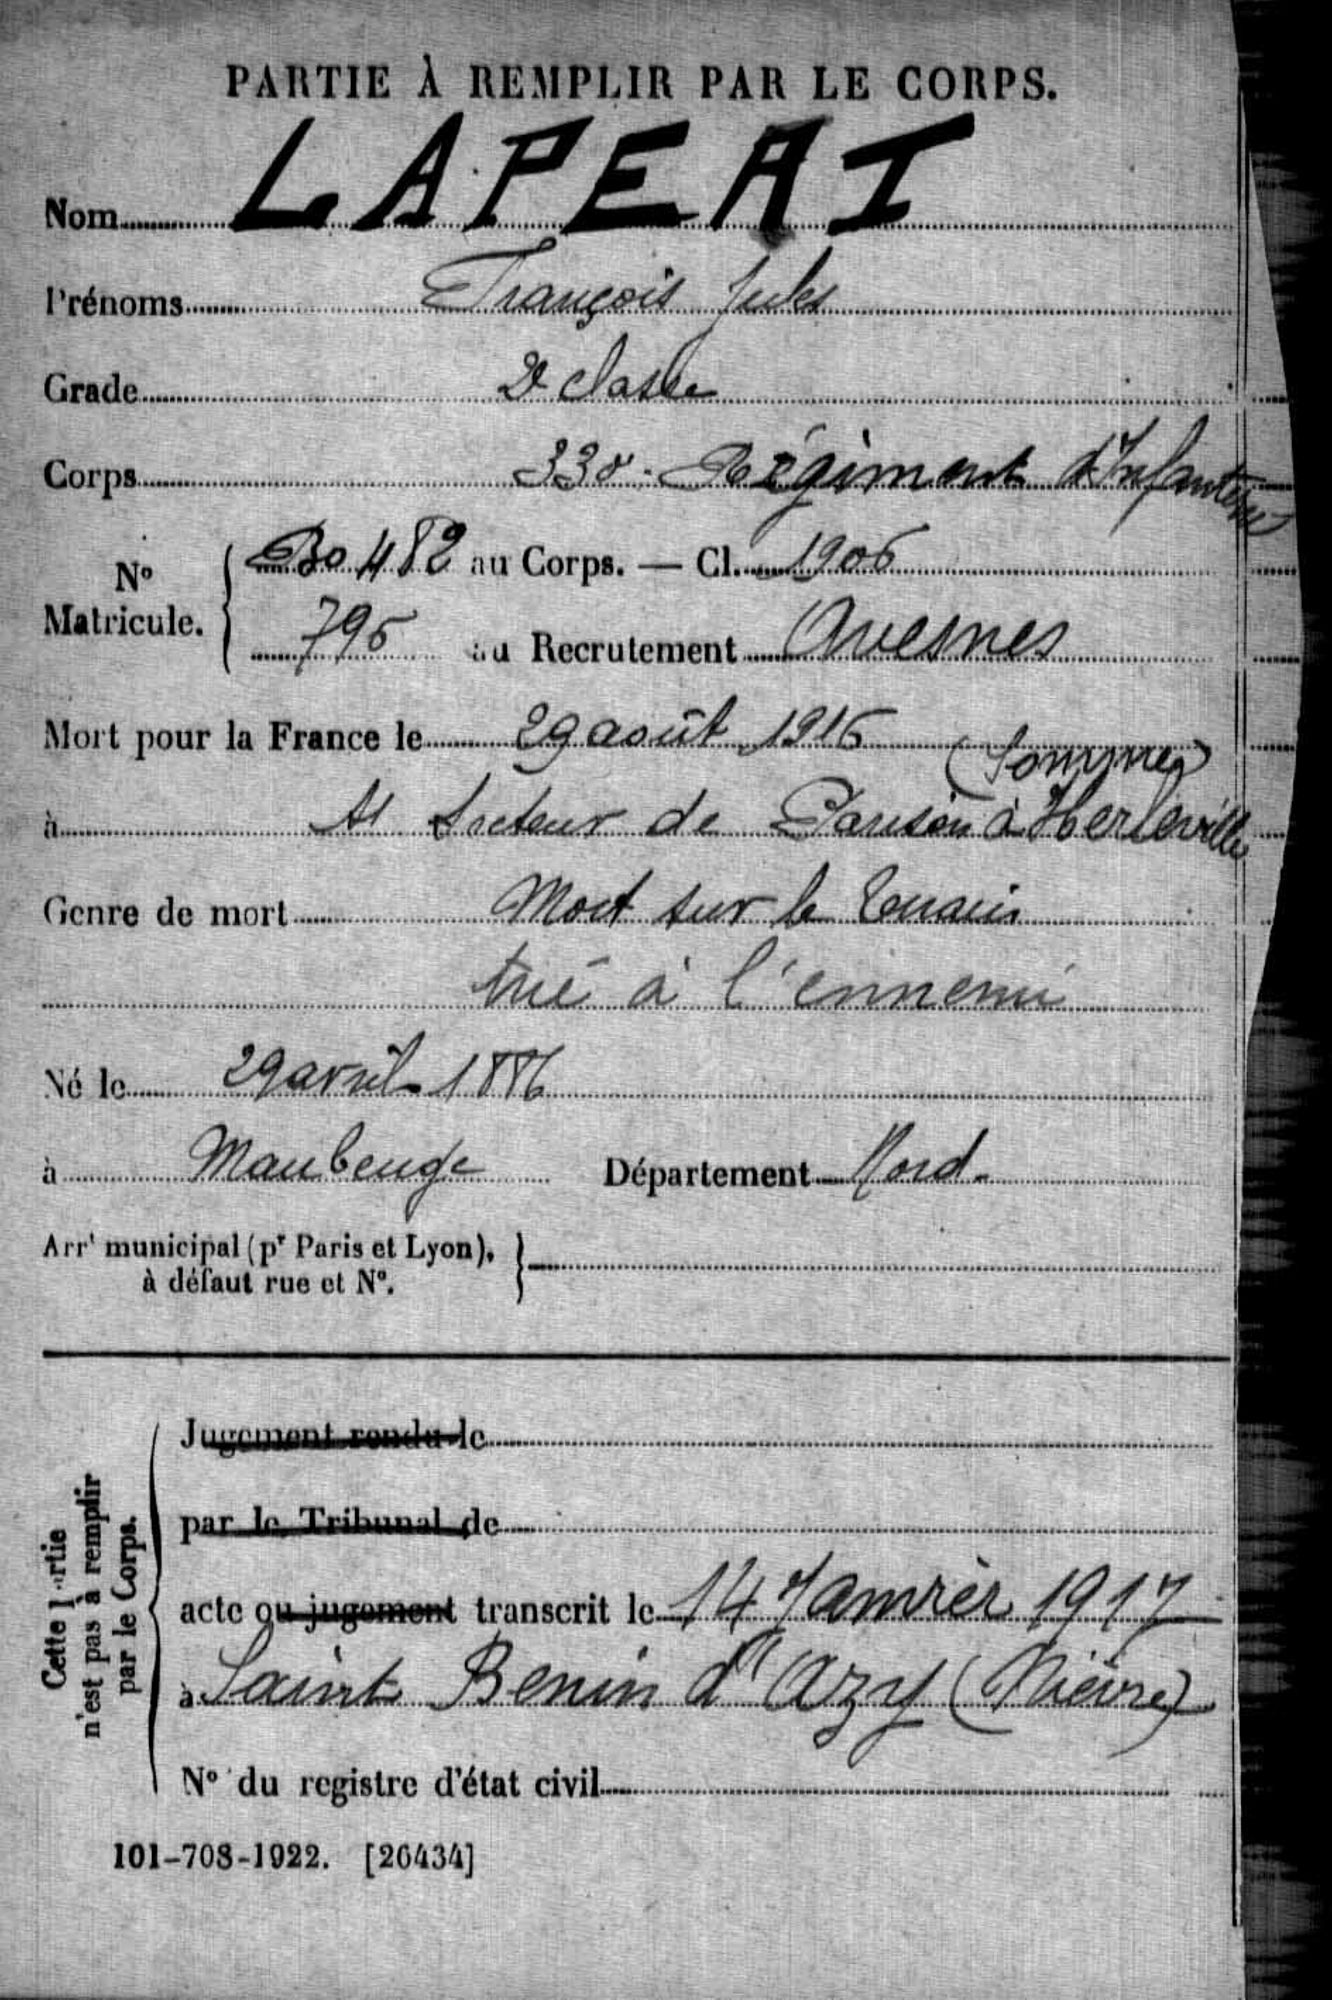 PARTIE À REMPLIR PAR LE CORPS.
Nom LAPERT
Prénoms François Jules
Grade 2e classe
Corps 330e Régiment d'Infanterie
No Matricule. 482 au Corps. — Cl. 1906
795 au Recrutement Avesnes
Mort pour la France le 29 août 1916
(Somme)
à Secteur de à Herleville
Genre de mort Mort sur le terrain
tué à l'ennemi
Né le 29 avril 1886
à Maubeuge Département Nord.
Arrt municipal (pr Paris et Lyon),
à défaut rue et No.
Jugement rendu le
par le Tribunal de
acte ou jugement transcrit le 14 Janvier 1917
à Saint Benin d'Azy (Nièvre)
No du registre d'état civil
Cette partie
n'est pas à remplir
par le Corps.
101-708-1922. [26434]